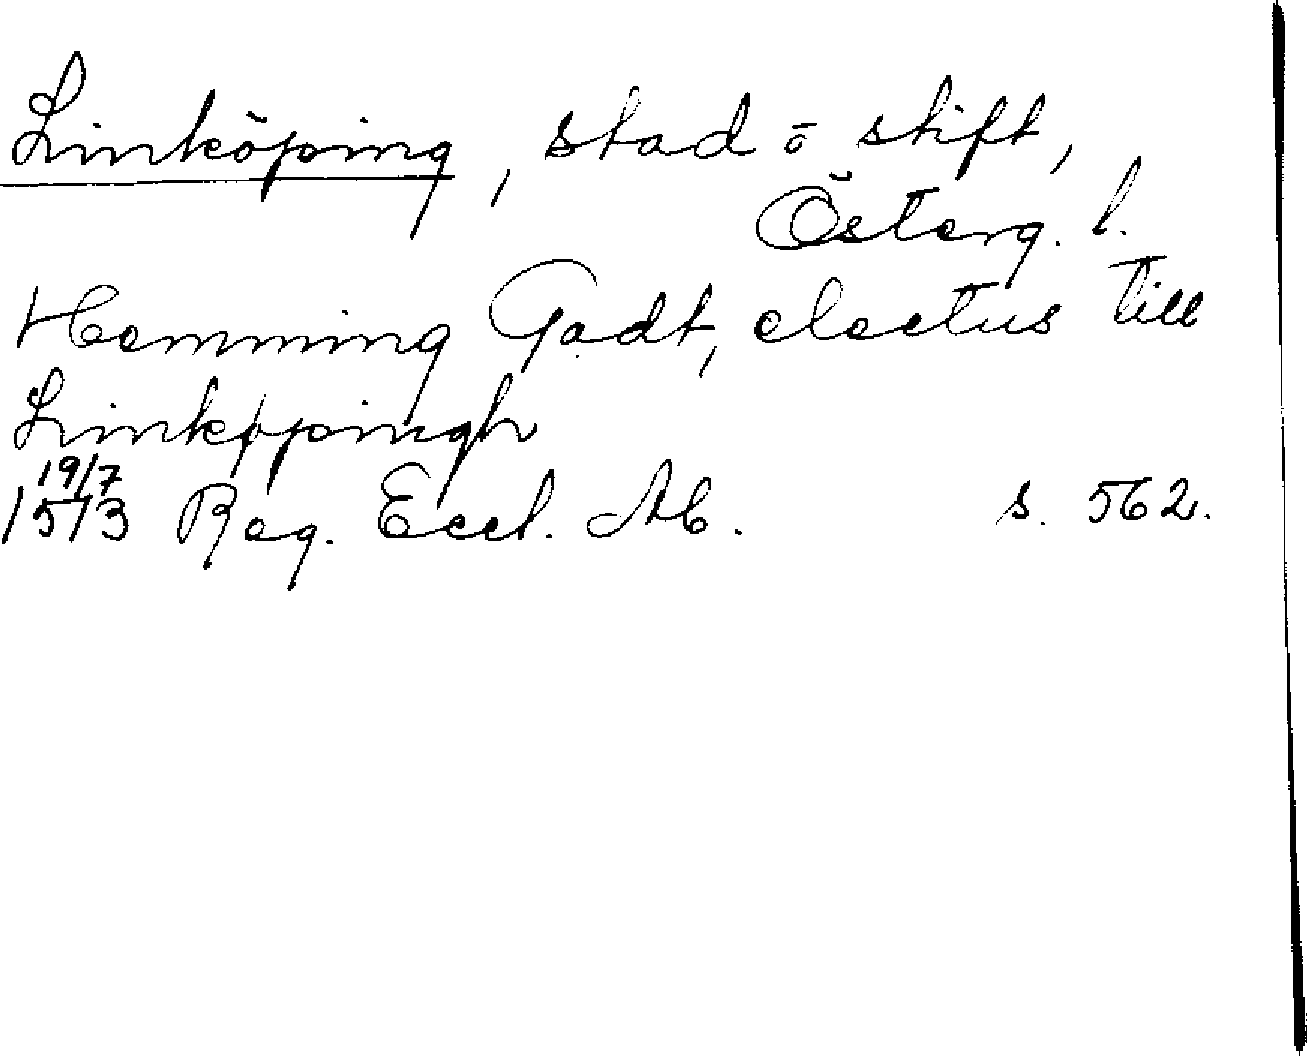 Linköping, stad ō stift,
Österg. l.
Hemming Gadt, electus till
Linkøpingh
19/7
1513 Reg. Eccl. Ab. s. 562.